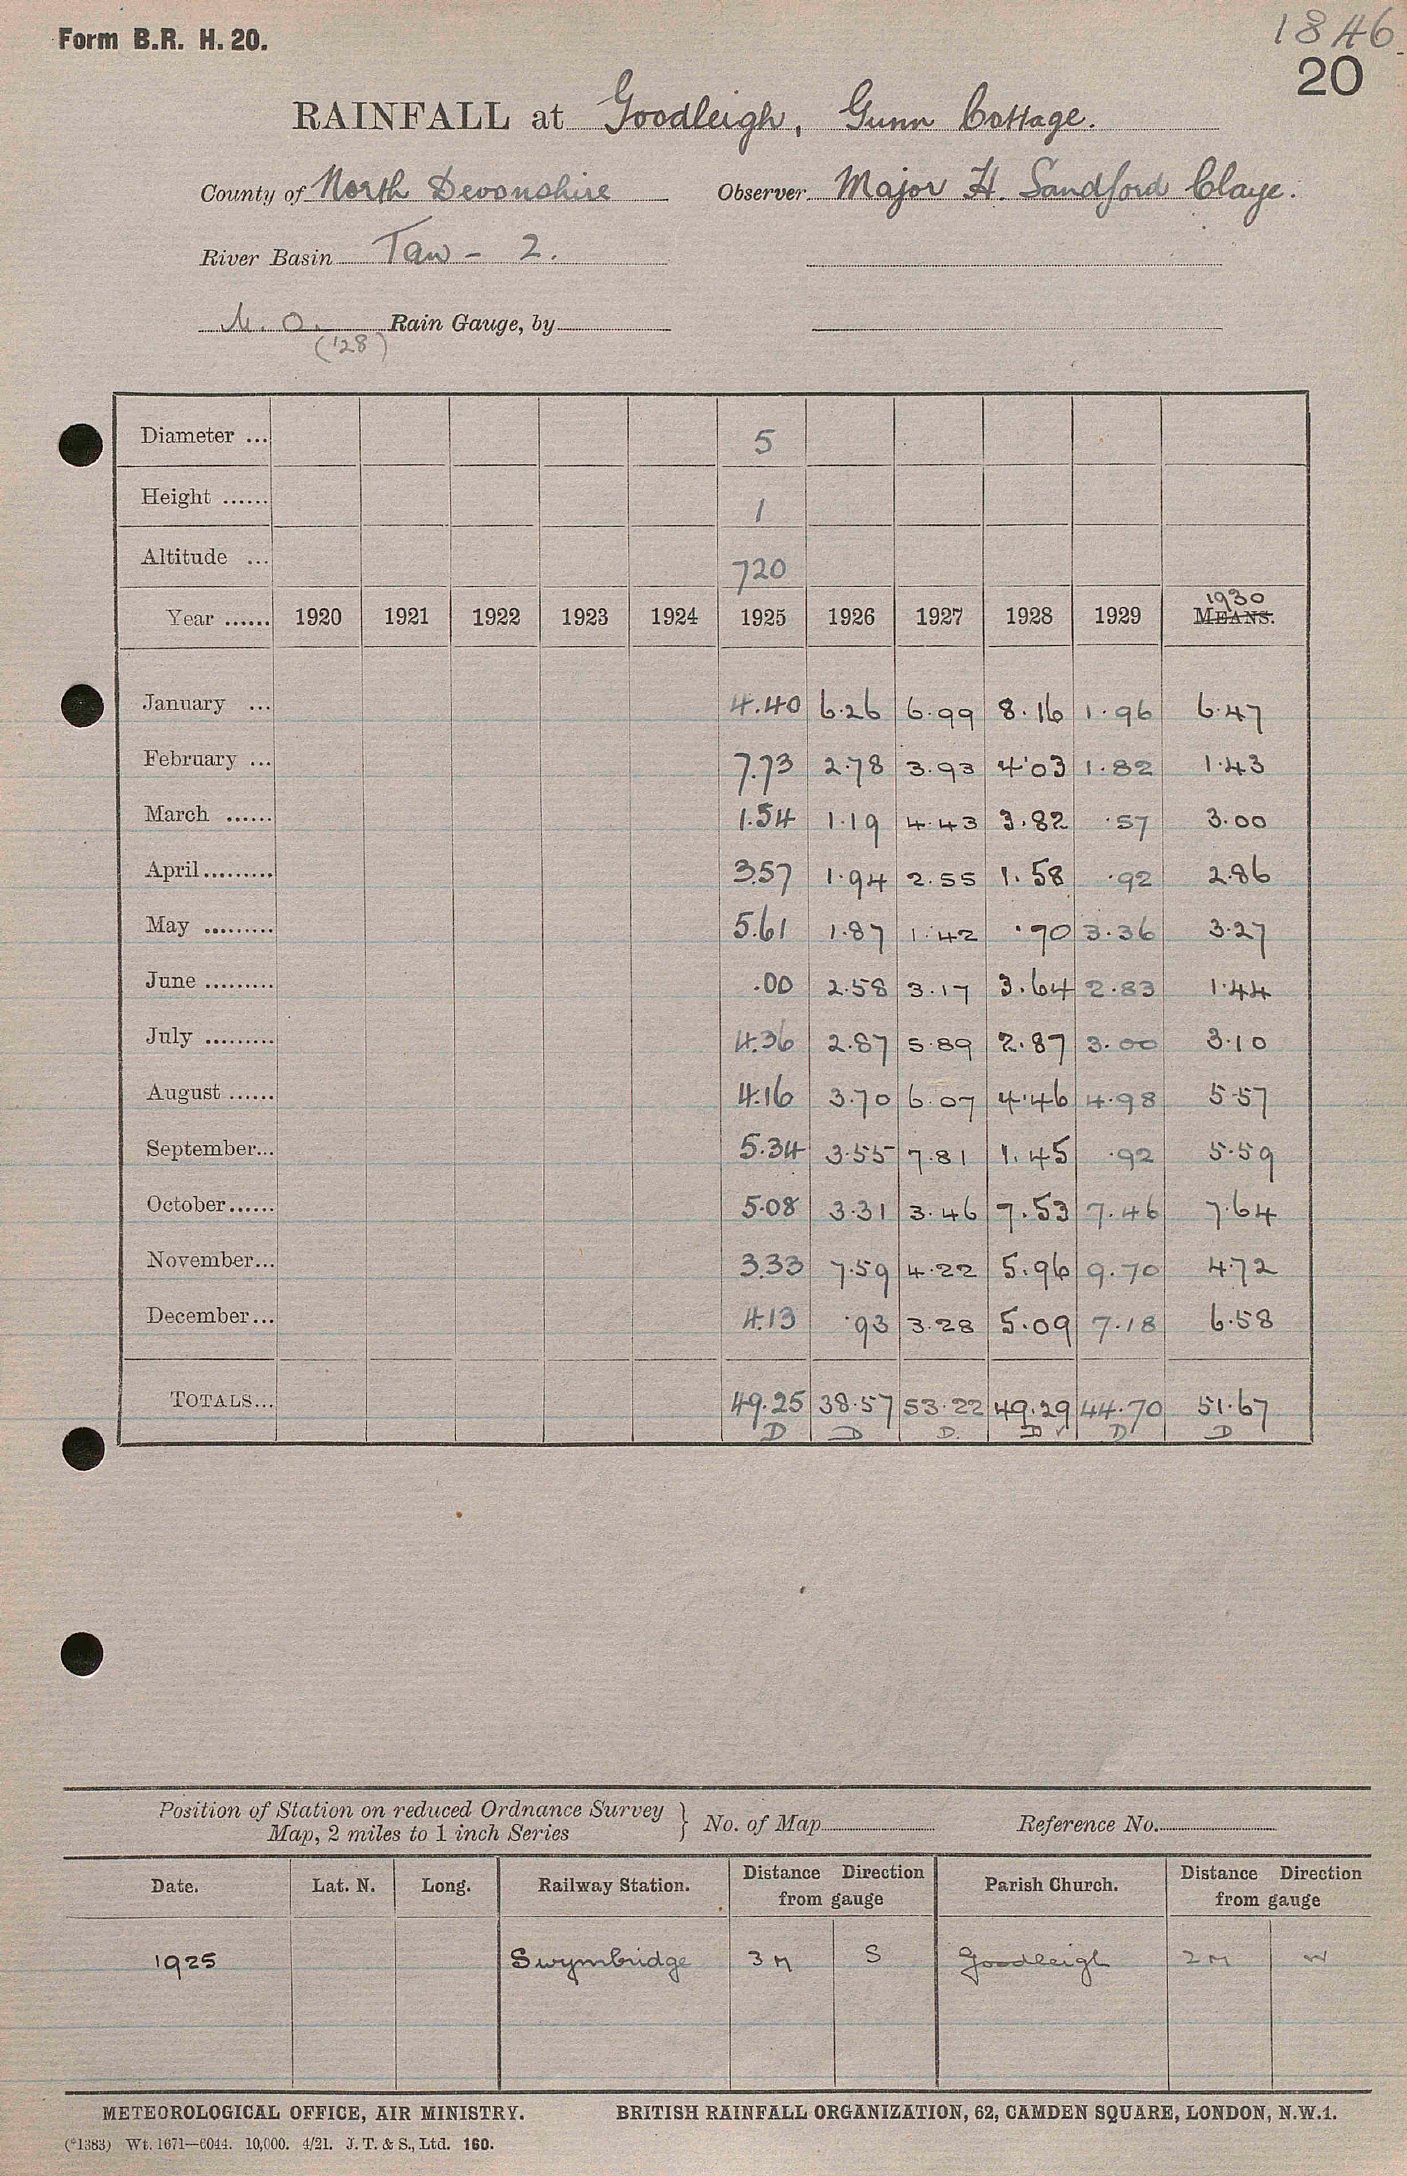 1846
Form B.R. H. 20.
20
RAINFALL at Goodleigh, Gunn Cottage.
County of North Devonshire Observer Major H. Sandford Claye.
River Basin Taw - 2.
M. O. Rain Gauge, by
('28)
Diameter ... 5
Height ...... 1
Altitude ... 720
1930
Year ...... 1920 1921 1922 1923 1924 1925 1926 1927 1928 1929 MEANS.
January ... 4.40 6.26 6.99 8.16 1.96 6.47
February ... 7.73 2.78 3.93 4.03 1.82 1.43
March ...... 1.54 1.19 4.43 3.82 .57 3.00
April......... 3.57 1.94 2.55 1.58 .92 2.86
May ......... 5.61 1.87 1.42 .70 3.36 3.27
June ......... .00 2.58 3.17 3.64 2.83 1.44
July ......... 4.36 2.87 5.89 2.87 3.00 3.10
August ...... 4.16 3.70 6.07 4.46 4.98 5.57
September... 5.34 3.55 7.81 1.45 .92 5.59
October...... 5.08 3.31 3.46 7.53 7.46 7.64
November... 3.33 7.59 4.22 5.96 9.70 4.72
December... 4.13 .93 3.28 5.09 7.18 6.58
TOTALS... 49.25 38.57 53.22 49.29 44.70 51.67
D D D. D ✓ D D
Position of Station on reduced Ordnance Survey
Map, 2 miles to 1 inch Series } No. of Map Reference No.
Date. Lat. N. Long. Railway Station. Distance Direction from gauge Parish Church. Distance Direction from gauge
1925 Swymbridge 3 M S Goodleigh 2 M W
METEOROLOGICAL OFFICE, AIR MINISTRY. BRITISH RAINFALL ORGANIZATION, 62, CAMDEN SQUARE, LONDON, N.W.1.
(*1383) Wt. 1671—6044. 10,000. 4/21. J. T. & S., Ltd. 160.